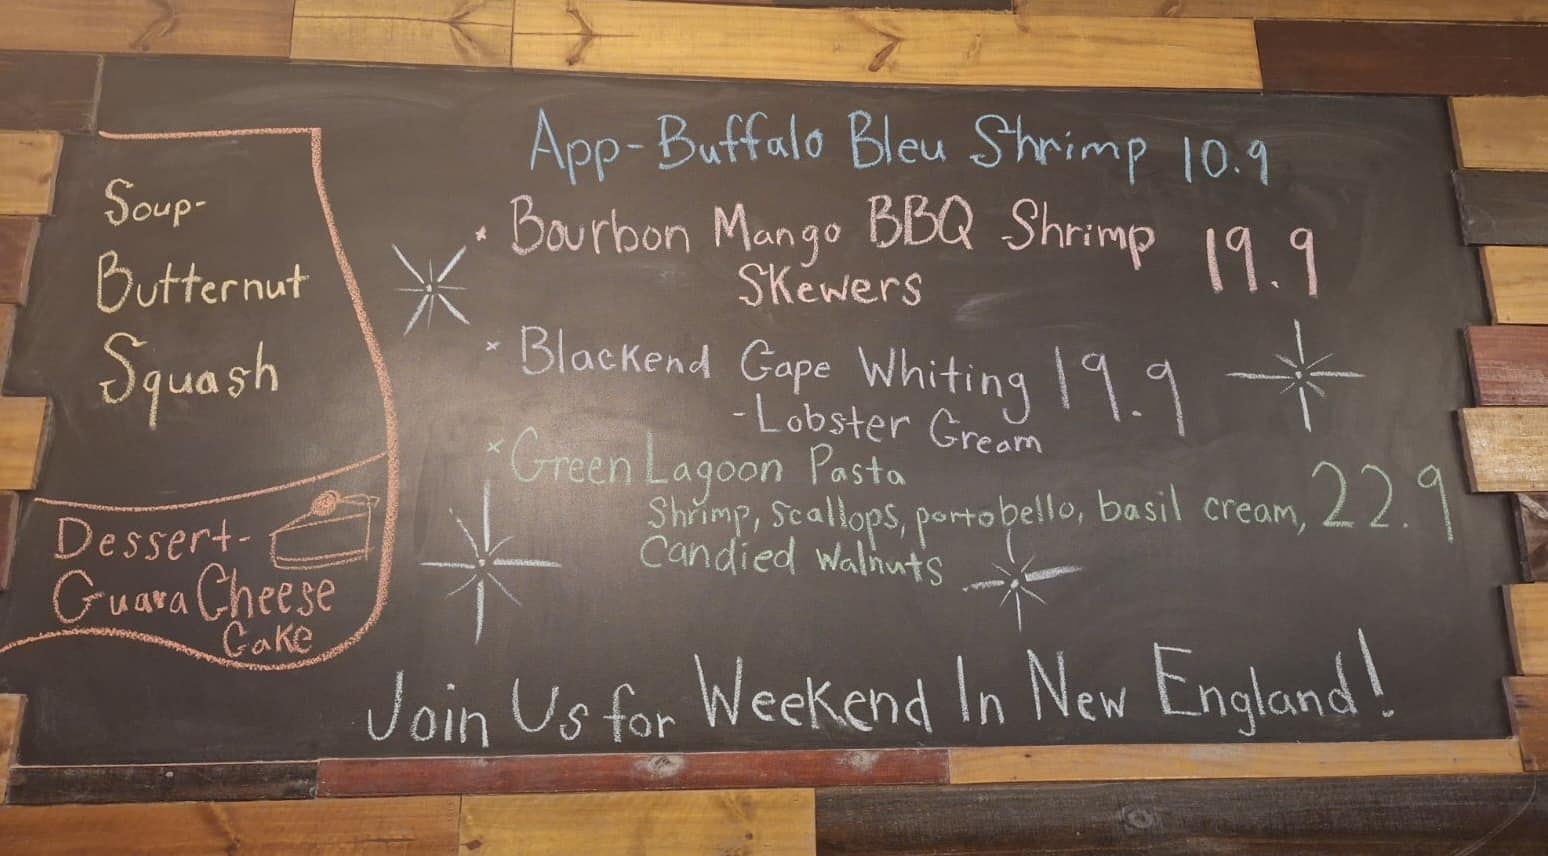 Soup-
Butternut
Squash
Dessert-
Guava Cheese
Cake
App-Buffalo Bleu Shrimp 10.9
* Bourbon Mango BBQ Shrimp 19.9
Skewers
* Blackend Cape Whiting 19.9
-Lobster Cream
* Green Lagoon Pasta
Shrimp, scallops, portobello, basil cream, 22.9
Candied walnuts
Join Us for Weekend In New England!